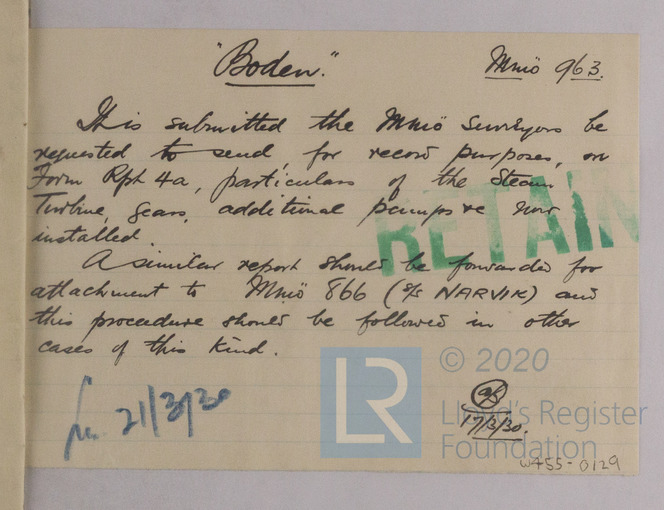 "Boden."
Mmö 963.
It is submitted the Mmö Surveyors be
requested to send, for record purposes, on
Form Rpt 4a, particulars of the Steam
Turbine, Gears, additional pumps &c now
installed.
A similar report should be forwarded for
attachment to Mmö 866 (S/S NARVIK) and
this procedure should be followed in other
cases of this kind.
RETAIN
21/3/30
17/3/30.
LR
© 2020
Lloyd's Register
Foundation
W455-0129